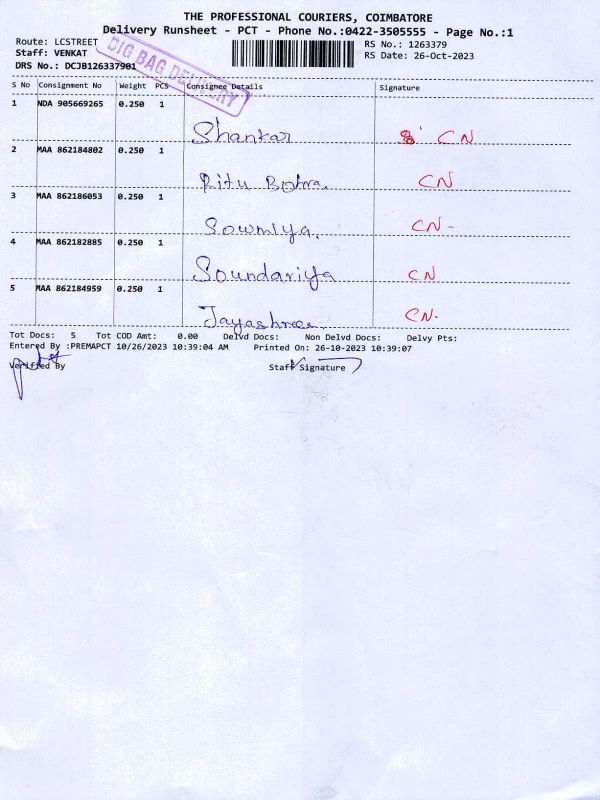 THE PROFESSIONAL COURIERS, COIMBATORE
Delivery Runsheet - PCT - Phone No.:0422-3505555 - Page No.:1
Route: LCSTREET
Staff: VENKAT
DRS No.: DCJB126337901
BIG BAG DELIVERY
RS No.: 1263379
RS Date: 26-Oct-2023
S No Consignment No Weight PCS Consignee Details Signature
1 NDA 905669265 0.250 1
Shankar CN
2 MAA 862184802 0.250 1
Ritu Bohra. CN
3 MAA 862186053 0.250 1
Sowmiya. CN-
4 MAA 862182885 0.250 1
Soundariya CN
5 MAA 862184959 0.250 1
Jayashree. CN.
Tot Docs: 5 Tot COD Amt: 0.00 Delvd Docs: Non Delvd Docs: Delvy Pts:
Entered By :PREMAPCT 10/26/2023 10:39:04 AM Printed On: 26-10-2023 10:39:07
Verified By Staff Signature